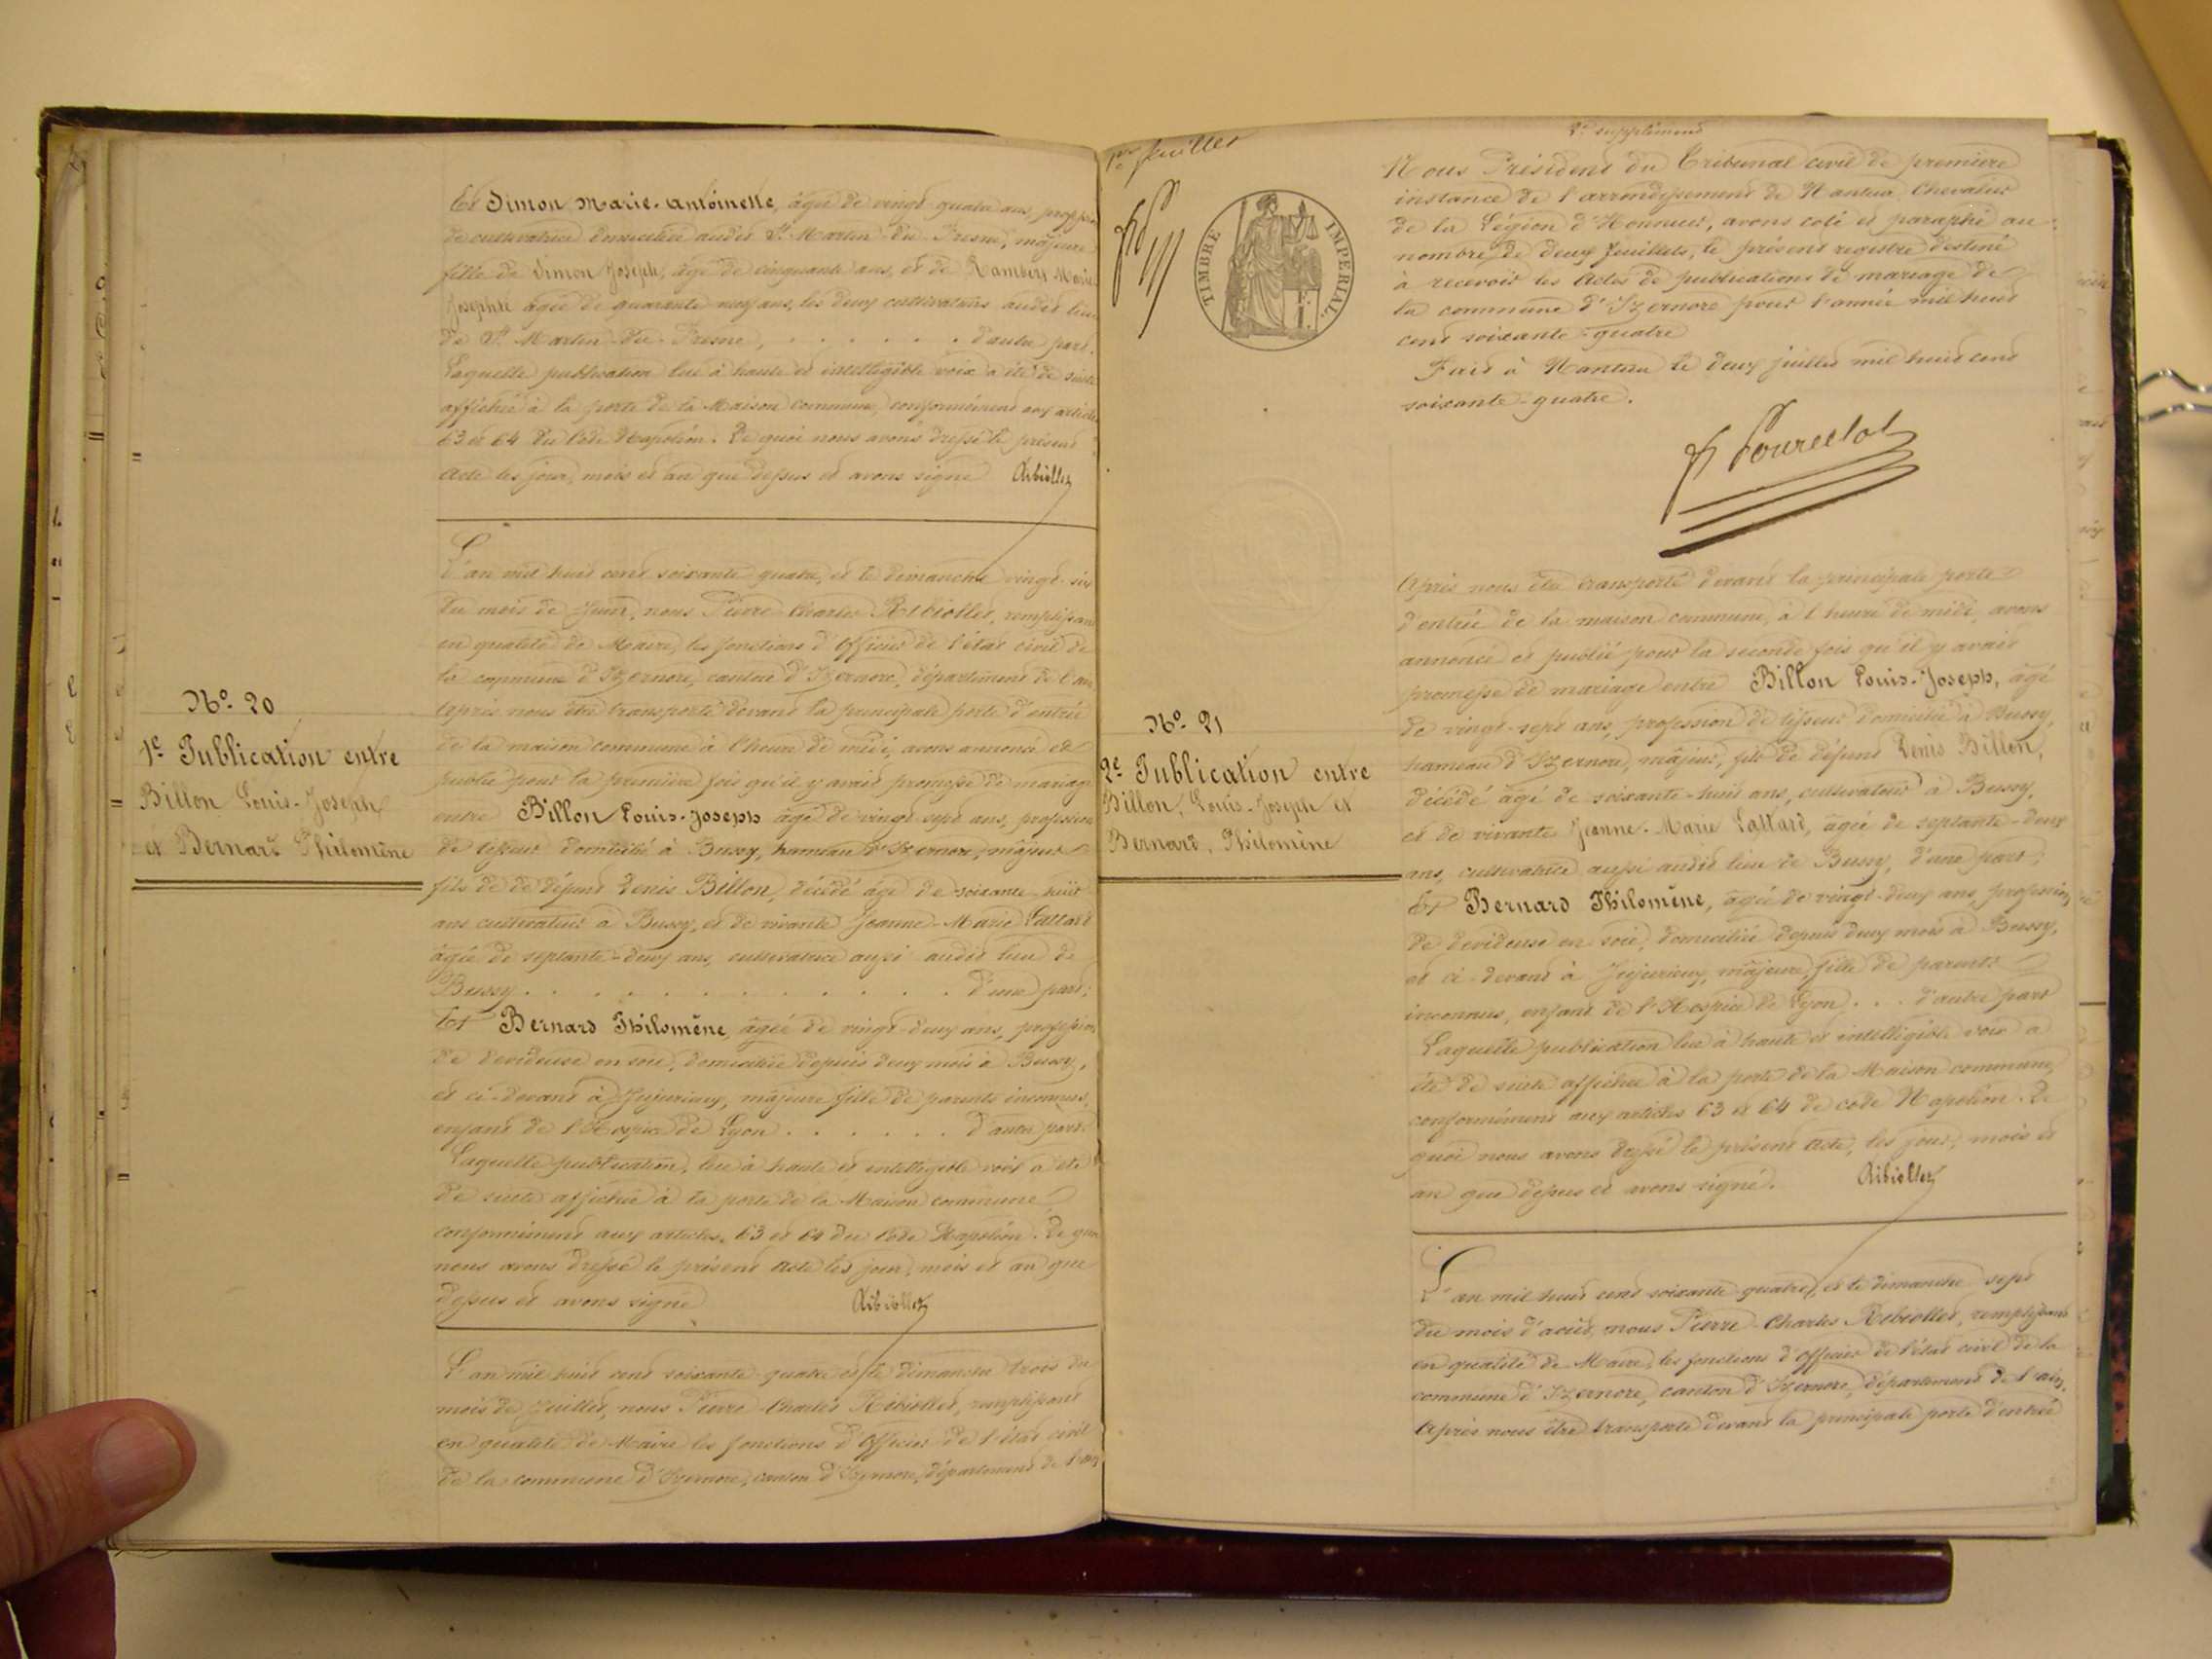 Et Simon Marie-Antoinette, âgée de vingt quatre ans, profession
de cultivatrice domiciliée audit St Martin-du-Fresne, majeure
fille de Simon Joseph, âgé de cinquante ans, et de Rambert Marie
Josephte âgée de quarante neuf ans, les deux cultivateurs audit lieu
de St Martin-du-Fresne, . . . . . . d'autre part.
Laquelle publication lue à haute et intelligible voix a été de suite
affichée à la porte de la Maison commune, conformément aux articles
63 et 64 du Code Napoléon. De quoi nous avons dressé le présent
acte les jour, mois et an que dessus et avons signé Ribiollet
L'an mil huit cent soixante quatre, et le dimanche vingt-six
du mois de Juin, nous Pierre-Charles Ribiollet, remplissant
en qualité de Maire, les fonctions d'Officier de l'état civil de
la commune d'Izernore, canton d'Izernore, département de l'ain
Après nous être transporté devant la principale porte d'entrée
de la maison commune à l'heure de midi, avons annoncé et
publié pour la première fois qu'il y avait promesse de mariage
entre Billon Louis-Joseph âgé de vingt sept ans, profession
de tisseur domicilié à Bussy, hameau d'Izernore, majeur
fils de de défunt Denis Billon, décédé âgé de soixante-huit
ans cultivateur à Bussy, et de vivante Jeanne-Marie Lattard
âgée de septante-deux ans, cultivatrice aussi audit lieu de
Bussy . . . . . . . . . . . . . d'une part;
Et Bernard Philomène, âgée de vingt-deux ans, profession
de devideuse en soie, domiciliée depuis deux mois à Bussy,
et ci-devant à Jujurieux, majeure fille de parents inconnus,
enfant de l'Hospice de Lyon . . . . . . d'autre part.
Laquelle publication, lue à haute et intelligible voix a été
de suite affichée à la porte de la Maison commune
conformément aux articles 63 et 64 du Code Napoléon. De quoi
nous avons dressé le présent acte les jour, mois et an que
dessus et avons signé Ribiollet
L'an mil huit cent soixante-quatre et le dimanche trois du
mois de Juillet, nous Pierre-Charles Ribiollet, remplissant
en qualité de Maire les fonctions d'Officier de l'état civil
de la commune d'Izernore, canton d'Izernore, département de l'ain
No. 20
1e Publication entre
Billon Louis-Joseph
et Bernard Philomène
1er feuillet
2e supplément
TIMBRE IMPERIAL.
Nous Président du Tribunal civil de première
instance de l'arrondissement de Nantua, Chevalier
de la Légion d'Honneur, avons coté et paraphé au
nombre de deux feuillets, le présent registre destiné
à recevoir les Actes de publications de mariage de
la commune d'Izernore pour l'année mil huit
cent soixante-quatre
Fait à Nantua le deux juillet mil huit cent
soixante-quatre.
Après nous être transporté devant la principale porte
d'entrée de la maison commune, à l'heure de midi, avons
annoncé et publié pour la seconde fois qu'il y avait
promesse de mariage entre Billon Louis-Joseph, âgé
de vingt-sept ans, profession de tisseur domicilié à Bussy,
hameau d'Izernore, majeur, fils de défunt Denis Billon,
décédé âgé de soixante-huit ans, cultivateur à Bussy,
et de vivante Jeanne-Marie Lattard, âgée de septante-deux
ans, cultivatrice aussi audit lieu de Bussy, d'une part;
Et Bernard Philomène, âgée de vingt-deux ans, profession
de devideuse en soie, domiciliée depuis deux mois à Bussy,
et ci-devant à Jujurieux, majeure, fille de parents
inconnus, enfant de l'Hospice de Lyon . . . d'autre part
Laquelle publication lue à haute et intelligible voix a
été de suite affichée à la porte de la Maison commune,
conformément aux articles 63 et 64 de code Napoléon. De
quoi nous avons dressé le présent acte, les jour, mois et
an que dessus et avons signé. Ribiollet
L'an mil huit cent soixante-quatre, et le dimanche sept
du mois d'août, nous Pierre-Charles Ribiollet, remplissant
en qualité de Maire, les fonctions d'Officier de l'état civil de la
commune d'Izernore, canton d'Izernore, département de l'ain.
Après nous être transporté devant la principale porte d'entrée
No. 21
2e Publication entre
Billon, Louis-Joseph et
Bernard, Philomène